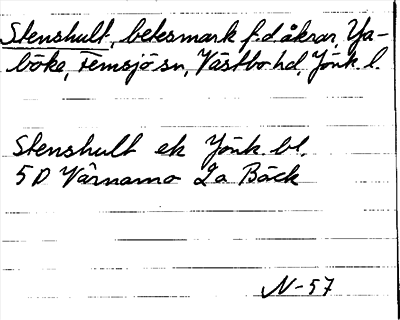 Stenshult, betesmark f.d åkrar, Ya-
böke, Femsjö sn, Västbo hd, Jönk. l.
Stenshult ek Jönk. bl.
5D Värnamo 2a Bäck
N-57